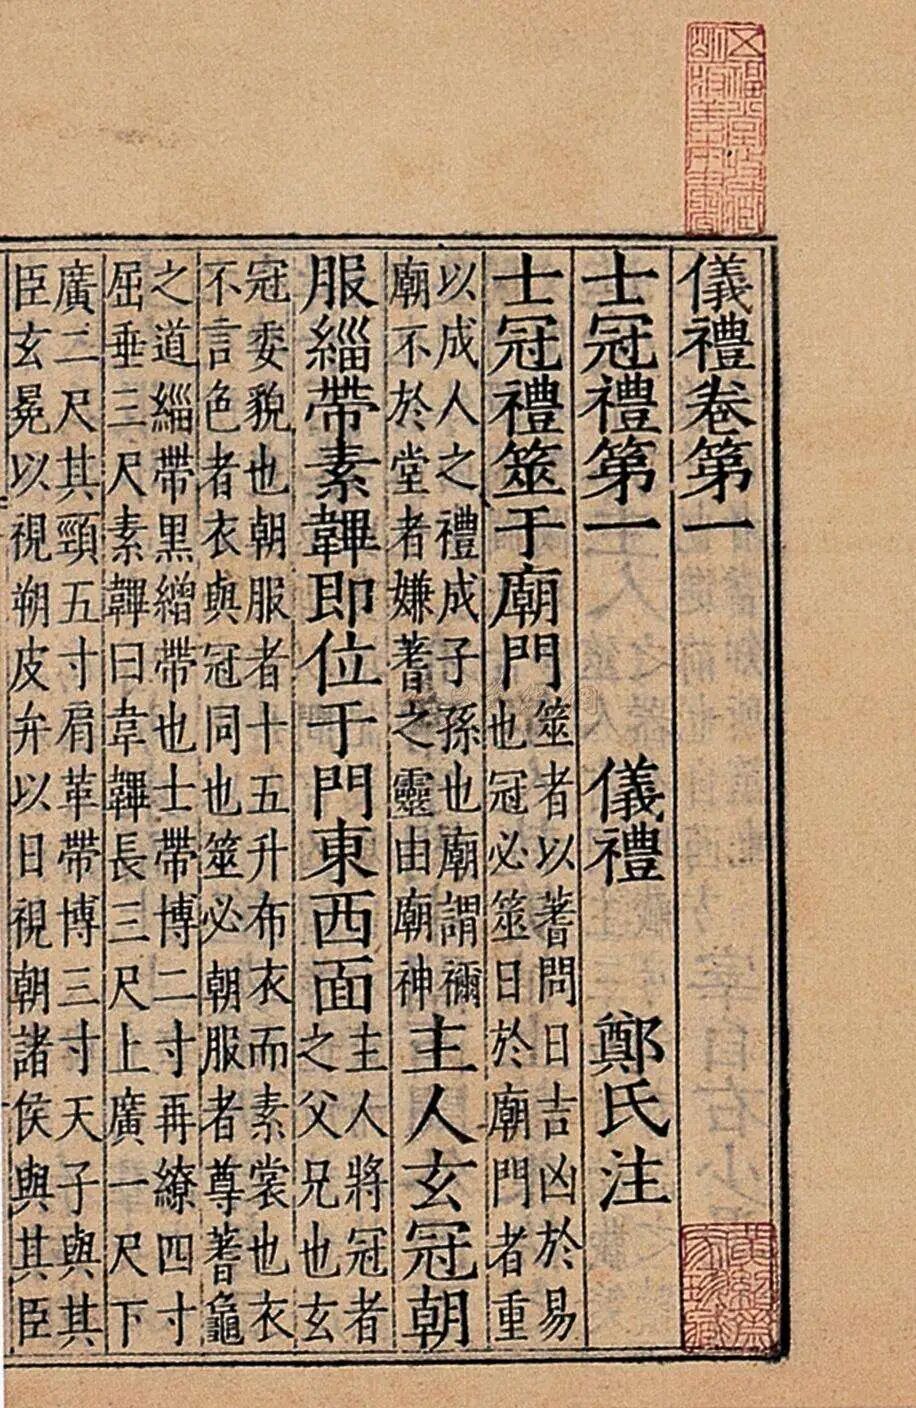 儀禮卷第一
士冠禮第一 儀禮 鄭氏注
士冠禮筮于廟門
筮者以蓍問日吉凶於易
也冠必筮日於廟門者重
以成人之禮成子孫也廟謂禰
廟不於堂者嫌蓍之靈由廟神
主人玄冠朝
服緇帶素韠即位于門東西面
主人將冠者
之父兄也玄
冠委貌也朝服者十五升布衣而素裳也衣
不言色者衣與冠同也筮必朝服者尊蓍龜
之道緇帶黑繒帶也士帶博二寸再繚四寸
屈垂三尺素韠曰韋韠長三尺上廣一尺下
廣二尺其頸五寸肩革帶博三寸天子與其
臣玄冕以視朔皮弁以日視朝諸侯與其臣